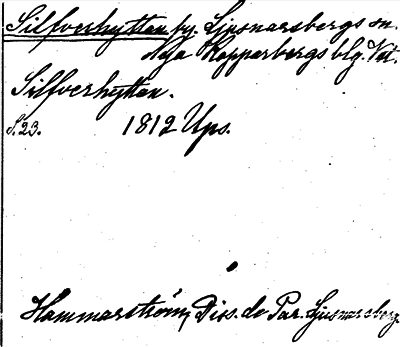 Silfverhyttan by. Ljusnarsbergs sn.
Nya Kopparbergs blg. Vst.
Silfverhyttan.
S. 23. 1812 Ups.
Hammarström, Diss. de Par. Ljusnarsberg.